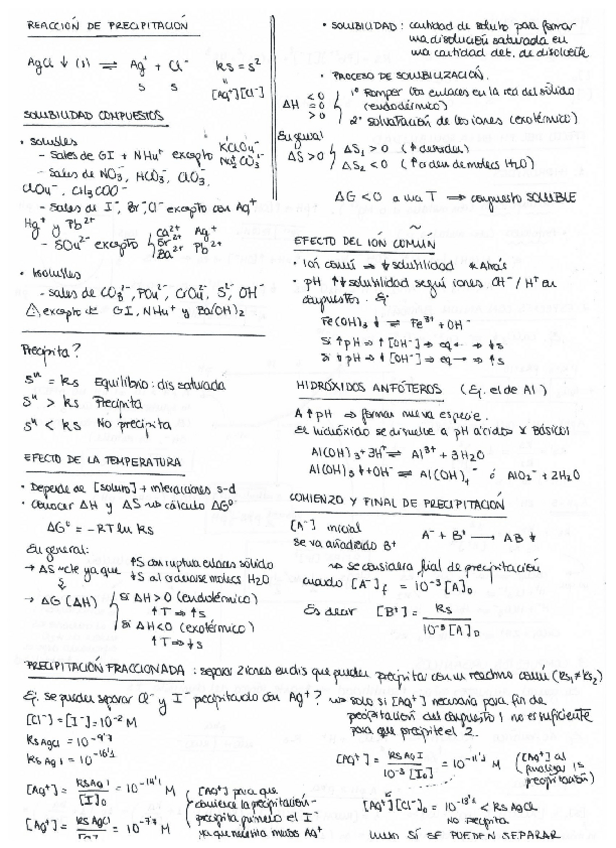 REACCIÓN DE PRECIPITACIÓN
AgCl ↓ (s) ⇌ Ag⁺ + Cl⁻ Ks = s²
s s [Ag⁺][Cl⁻]
SOLUBILIDAD COMPUESTOS
• solubles
- Sales de GI + NH4⁺ excepto KClO4⁻
- Sales de NO3⁻, HCO3⁻, ClO3⁻,
ClO4⁻, CH3COO⁻
- Sales de I⁻, Br⁻, Cl⁻ excepto con Ag⁺
Hg⁺ y Pb²⁺
- SO4²⁻ excepto Ca²⁺ Ag⁺
Sr²⁺
Ba²⁺ Pb²⁺
• Insolubles
- sales de CO3²⁻, PO4³⁻, CrO4²⁻, S²⁻, OH⁻
⚠ excepto de GI, NH4⁺ y Ba(OH)2
Precipita?
Sⁿ = Ks Equilibrio: dis saturada
Sⁿ > Ks Precipita
Sⁿ < Ks No precipita
EFECTO DE LA TEMPERATURA
• Depende de [soluto] + interacciones s-d
• Conocer ΔH y ΔS ⇝ cálculo ΔG⁰
ΔG⁰ = -RT ln Ks
En general:
→ ΔS ya que ↑S con ruptura enlaces sólido
↓S al ordenarse molecs H2O
→ ΔG (ΔH) Si ΔH>0 (endotérmico)
↑T ⇒ ↑s
Si ΔH<0 (exotérmico)
↑T ⇒ ↓s
• SOLUBILIDAD: cantidad de soluto para formar
una disolución saturada en
una cantidad det. de disolvente
• PROCESO DE SOLUBILIZACIÓN.
ΔH <0 =0 >0 1º Romper los enlaces en la red del sólido
(endodérmico)
2º Solvatación de los iones (exotérmico)
En general
ΔS>0 ΔS1 > 0 (↑ desorden)
ΔS2 < 0 (↑ orden de molecs H2O)
ΔG<0 a una T ⇒ compuesto SOLUBLE
EFECTO DEL IÓN COMÚN
• Ión común ⇒ ↓ solubilidad * Atrás
• pH ↑↓ solubilidad según iones OH⁻/H⁺ en
compuestos. Ej.
Fe(OH)3 ↓ ⇌ Fe³⁺ + OH⁻
Si ↑pH ⇒ ↑[OH⁻] ⇒ eq ← ⇒ ↓s
Si ↓pH ⇒ ↓[OH⁻] ⇒ eq → ⇒ ↑s
HIDRÓXIDOS ANFÓTEROS (Ej. el de Al)
A ↑pH ⇒ forman nueva especie.
El hidróxido se disuelve a pH ácidos y BÁSICOS
Al(OH)3 + 3H⁺ ⇌ Al³⁺ + 3H2O
Al(OH)3↓ + OH⁻ ⇌ Al(OH)4⁻ ó AlO2⁻ + 2H2O
COMIENZO Y FINAL DE PRECIPITACIÓN
[A⁻] inicial
se va añadiendo B⁺ A⁻ + B⁺ → AB ↓
⇝ se considera final de precipitación
cuando [A⁻]f = 10⁻³ [A]0
Es decir [B⁺] = Ks / 10⁻³ [A]0
PRECIPITACIÓN FRACCIONADA: separar 2 iones en dis que pueden precipitar con un reactivo común (Ks1 ≠ Ks2)
Ej. se pueden separar Cl⁻ y I⁻ precipitando con Ag⁺? ⇝ solo si [Ag⁺] necesaria para fin de
precipitación del compuesto 1 no es suficiente
para que precipite el 2.
[Cl⁻] = [I⁻] = 10⁻² M
Ks AgCl = 10⁻⁹'⁷
Ks AgI = 10⁻¹⁶'¹
[Ag⁺] = KsAgI / [I]0 = 10⁻¹⁴'¹ M
[Ag⁺] = KsAgCl / [Cl]0 = 10⁻⁷'⁷ M
[Ag⁺] para que
comience la precipitación-
precipita primero el I⁻
ya que necesita menos Ag⁺
[Ag⁺] = KsAgI / 10⁻³ [I0] = 10⁻¹¹'¹ M ([Ag⁺] al
finalizar 1ª
precipitación)
[Ag⁺][Cl⁻]0 = 10⁻¹³'¹ < Ks AgCl
NO Precipita
LUEGO SÍ SE PUEDEN SEPARAR